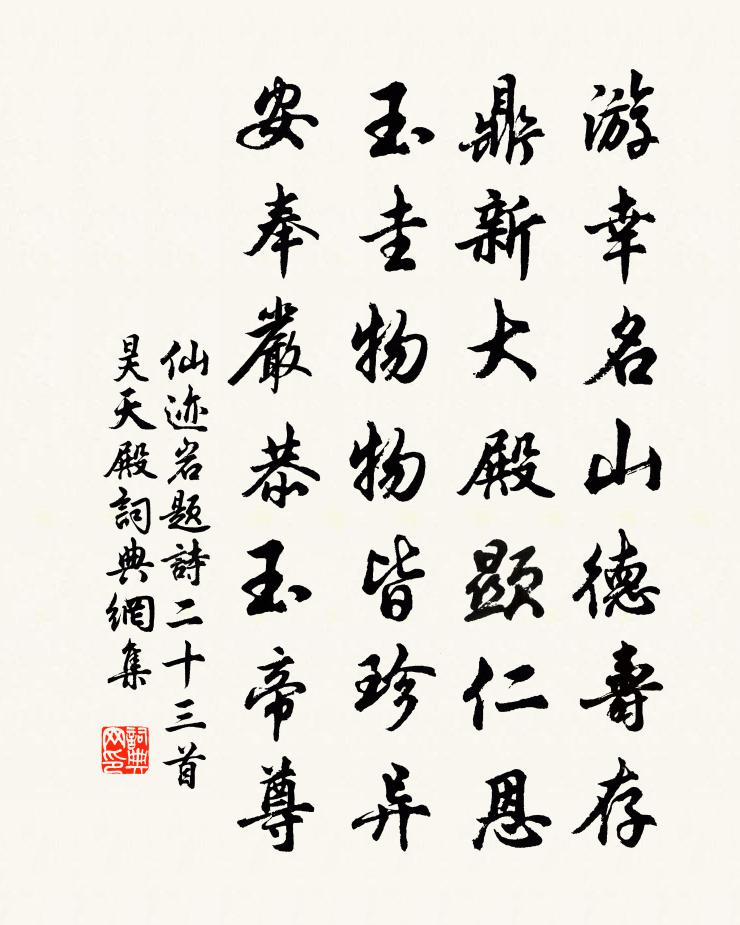 游幸名山德壽存
鼎新大殿顯仁恩
玉圭物物皆珍异
安奉嚴恭玉帝尊
仙迹岩題詩二十三首
昊天殿詞典網集
詞典
网印